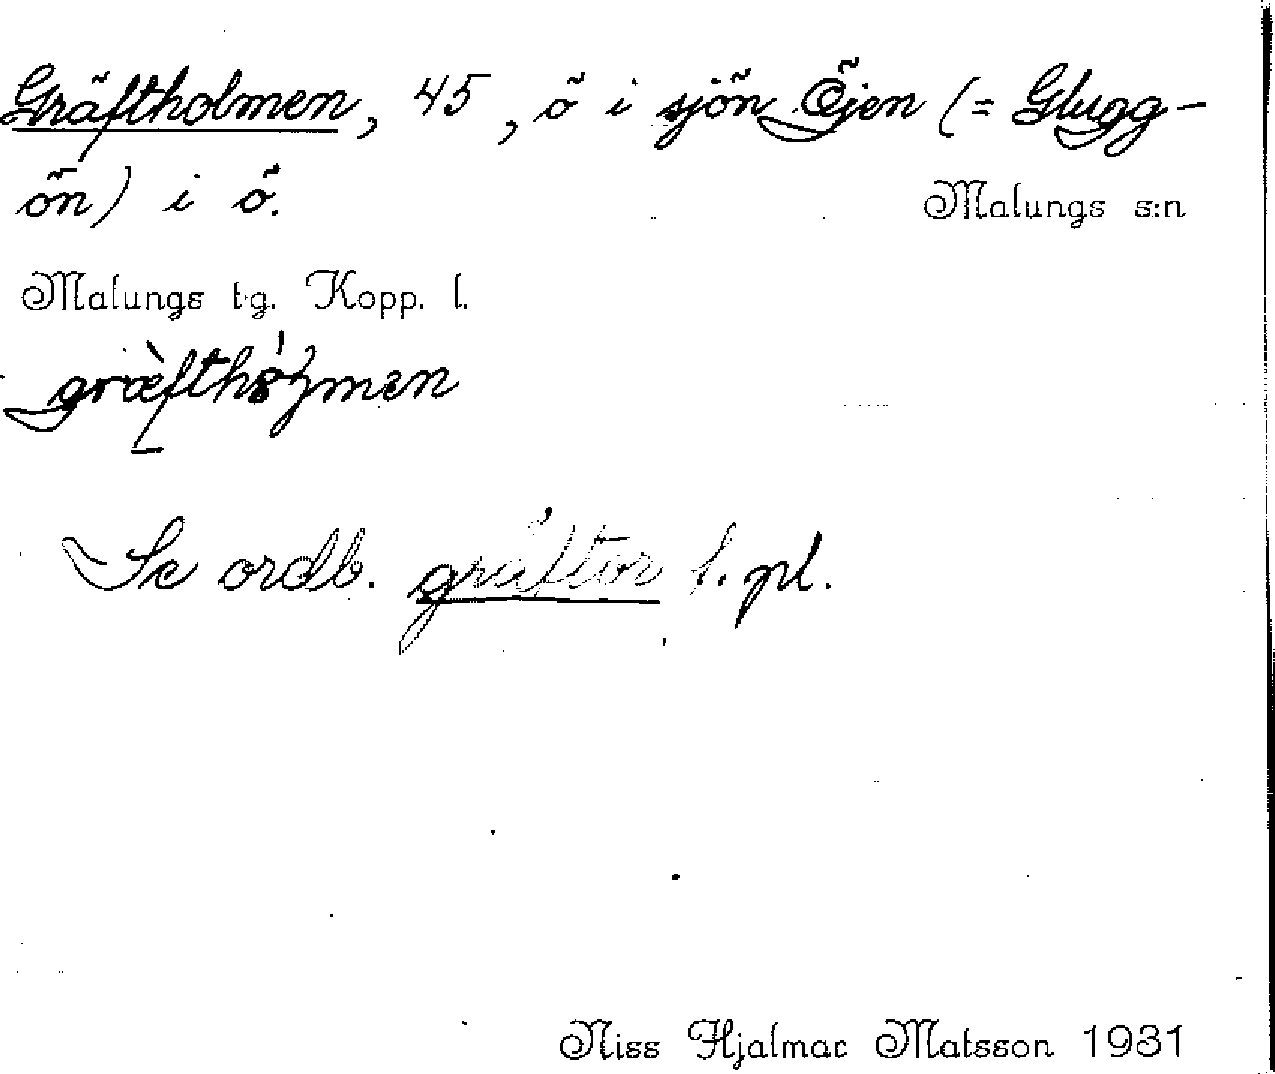 Gräftholmen, 45, ö i sjön Öjen (= Glugg-
ön) i ö.
Malungs s:n
Malungs t.g. Kopp. l.
Se ordb. gräftor f. pl.
Niss Hjalmar Matsson 1931